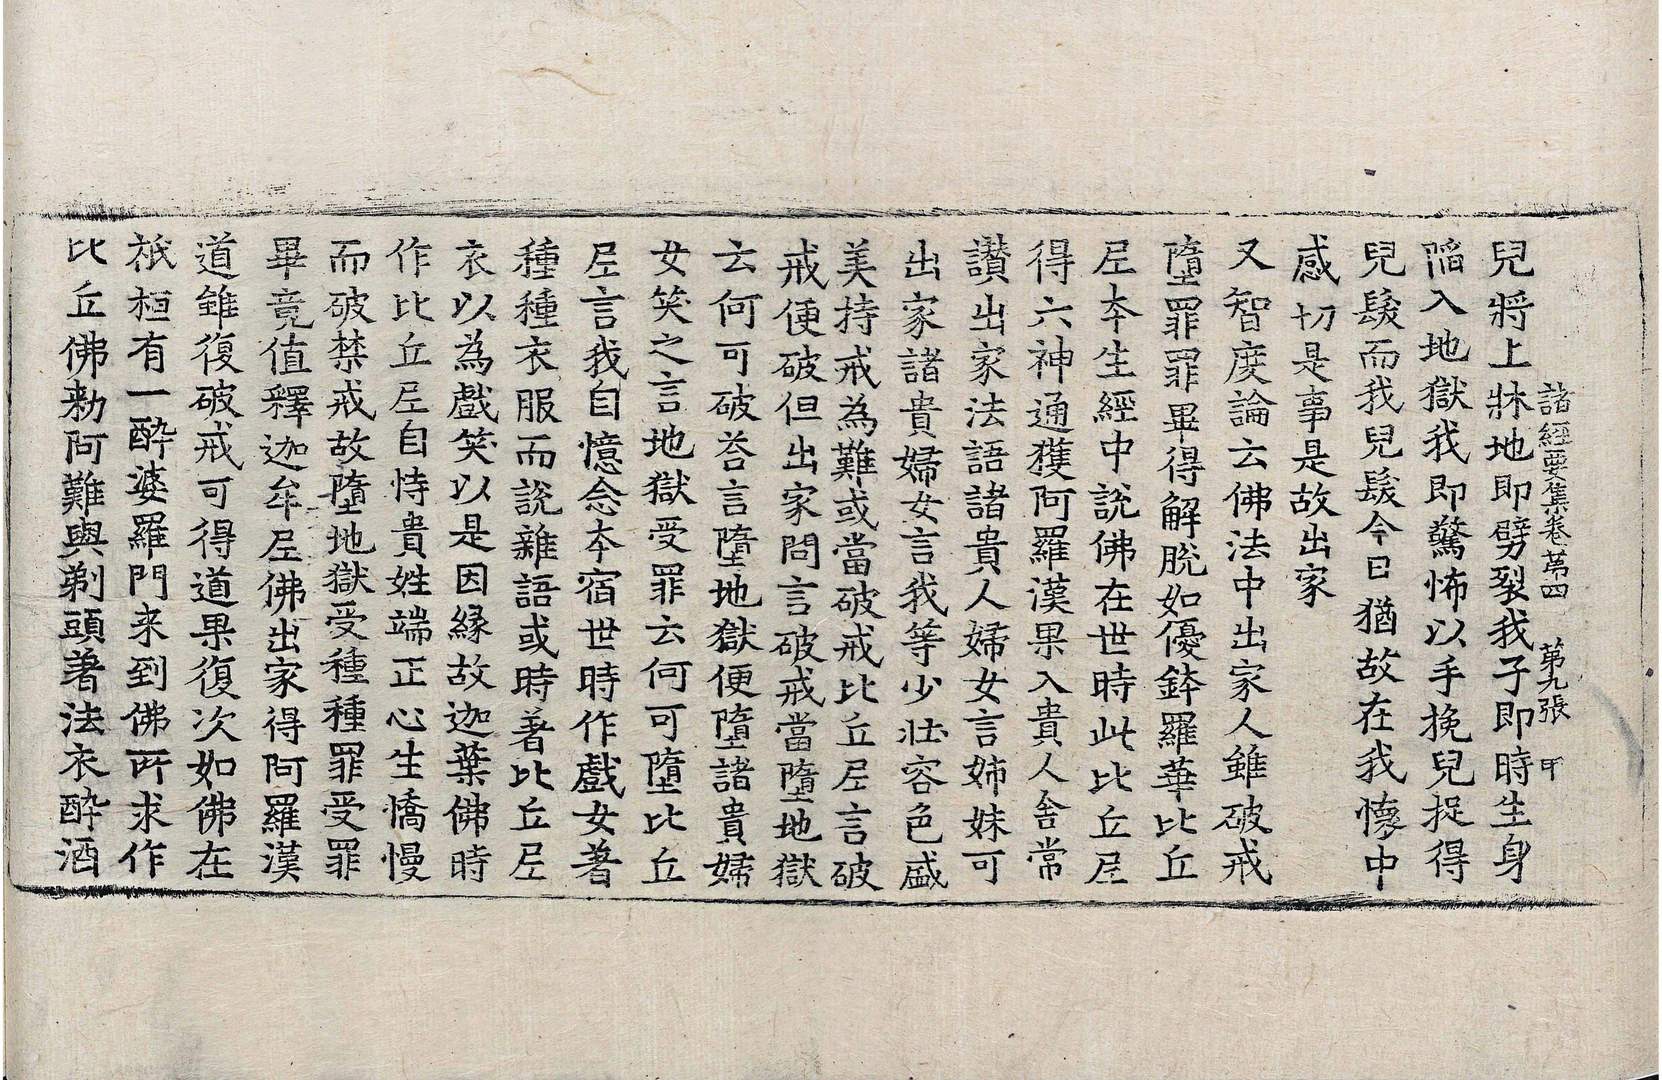 諸經要集卷第四　第九張　甲
兒將上牀地即劈裂我子即時生身
陷入地獄我即驚怖以手挽兒捉得
兒髮而我兒髮今日猶故在我懷中
感切是事是故出家
又智度論云佛法中出家人雖破戒
墮罪罪畢得解脫如優鉢羅華比丘
尼本生經中說佛在世時此比丘尼
得六神通獲阿羅漢果入貴人舍常
讚出家法語諸貴人婦女言姉妹可
出家諸貴婦女言我等少壯容色盛
美持戒為難或當破戒比丘尼言破
戒便破但出家問言破戒當墮地獄
云何可破荅言墮地獄便墮諸貴婦
女笑之言地獄受罪云何可墮比丘
尼言我自憶念本宿世時作戲女著
種種衣服而說雜語或時著比丘尼
衣以為戲笑以是因緣故迦葉佛時
作比丘尼自恃貴姓端正心生憍慢
而破禁戒故墮地獄受種種罪受罪
畢竟值釋迦牟尼佛出家得阿羅漢
道雖復破戒可得道果復次如佛在
祇桓有一醉婆羅門来到佛所求作
比丘佛勑阿難與剃頭著法衣醉酒